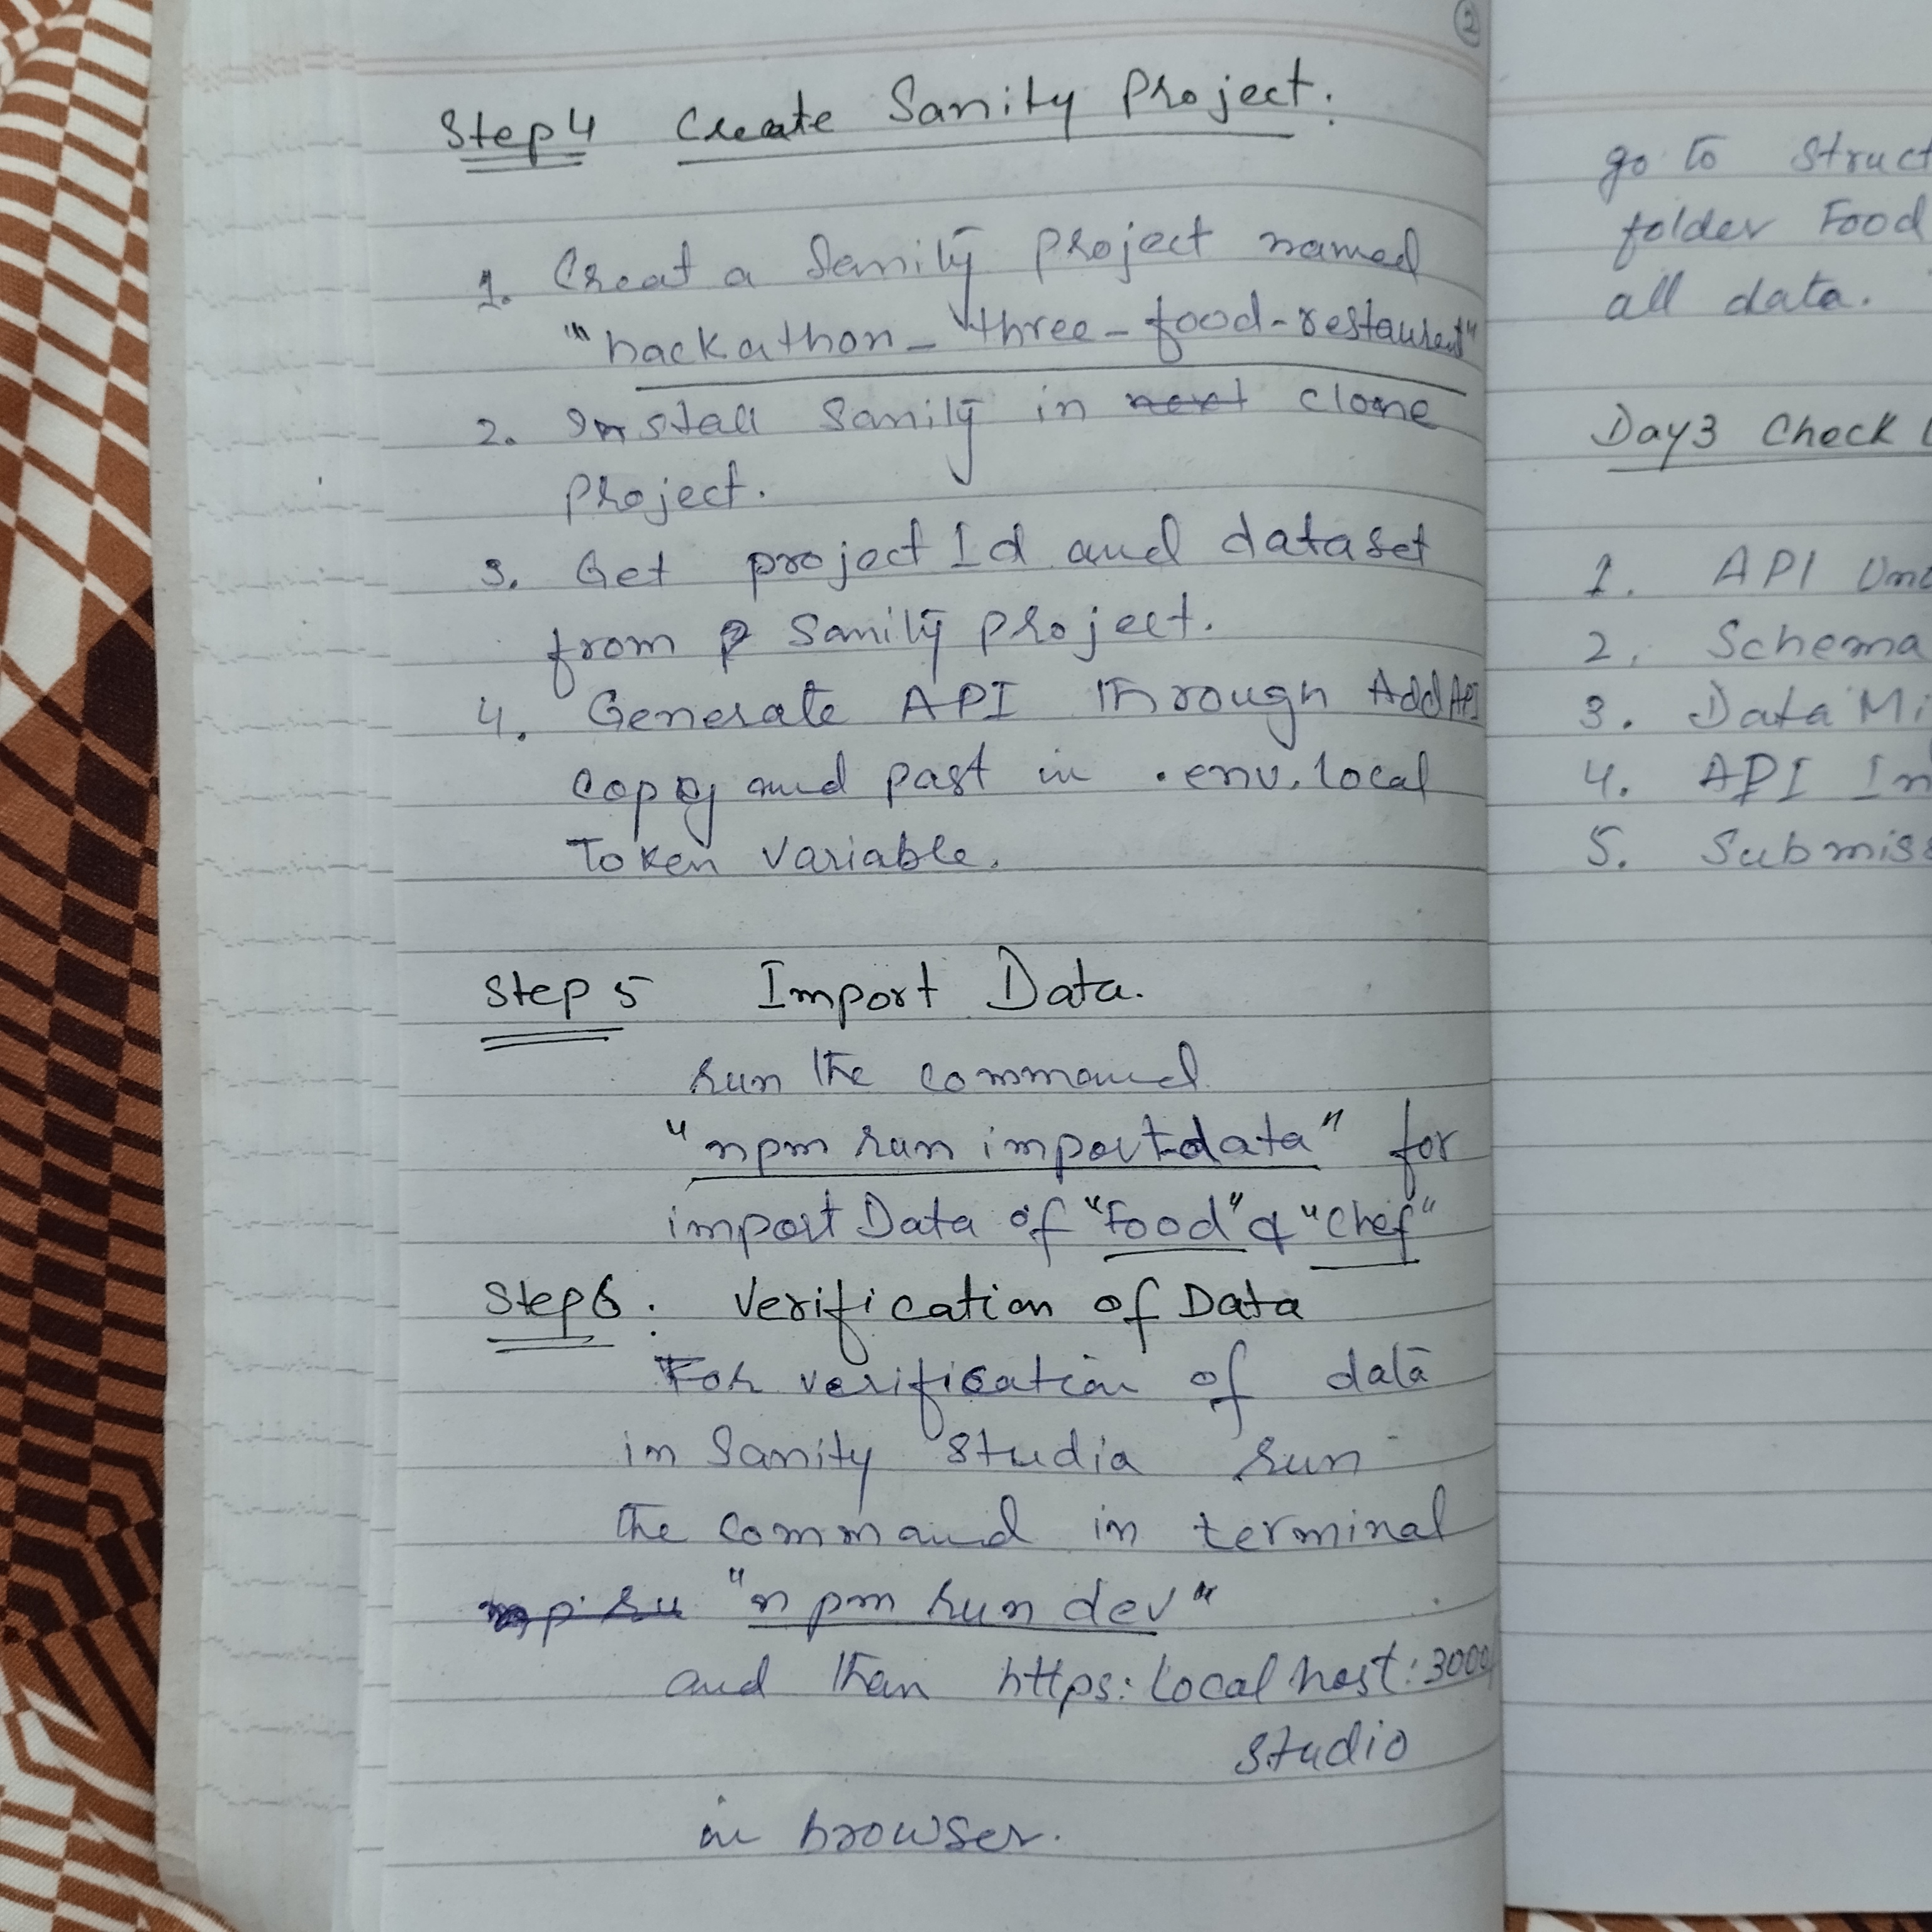 2
Step 4 Create Sanity Project.
1. Creat a Sanity project named
"hackathon-three-food-restaurent"
2. Install Sanity in next clone
project.
3. Get project Id and dataset
from Sanity project.
4. Generate API through Add API
copy and past in .env.local
Token variable.
Step 5 Import Data.
run the command
"npm run import-data" for
import Data of "Food" & "Chef"
Step 6: Verification of Data
For verification of data
in Sanity Studia run
the command in terminal
"npm run dev"
and then https:localhost:3000/
studio
in browser.
go to Struct
folder Food
all data.
Day3 Check
1. API Und
2. Schema
3. Data Mi
4. API In
5. Submiss